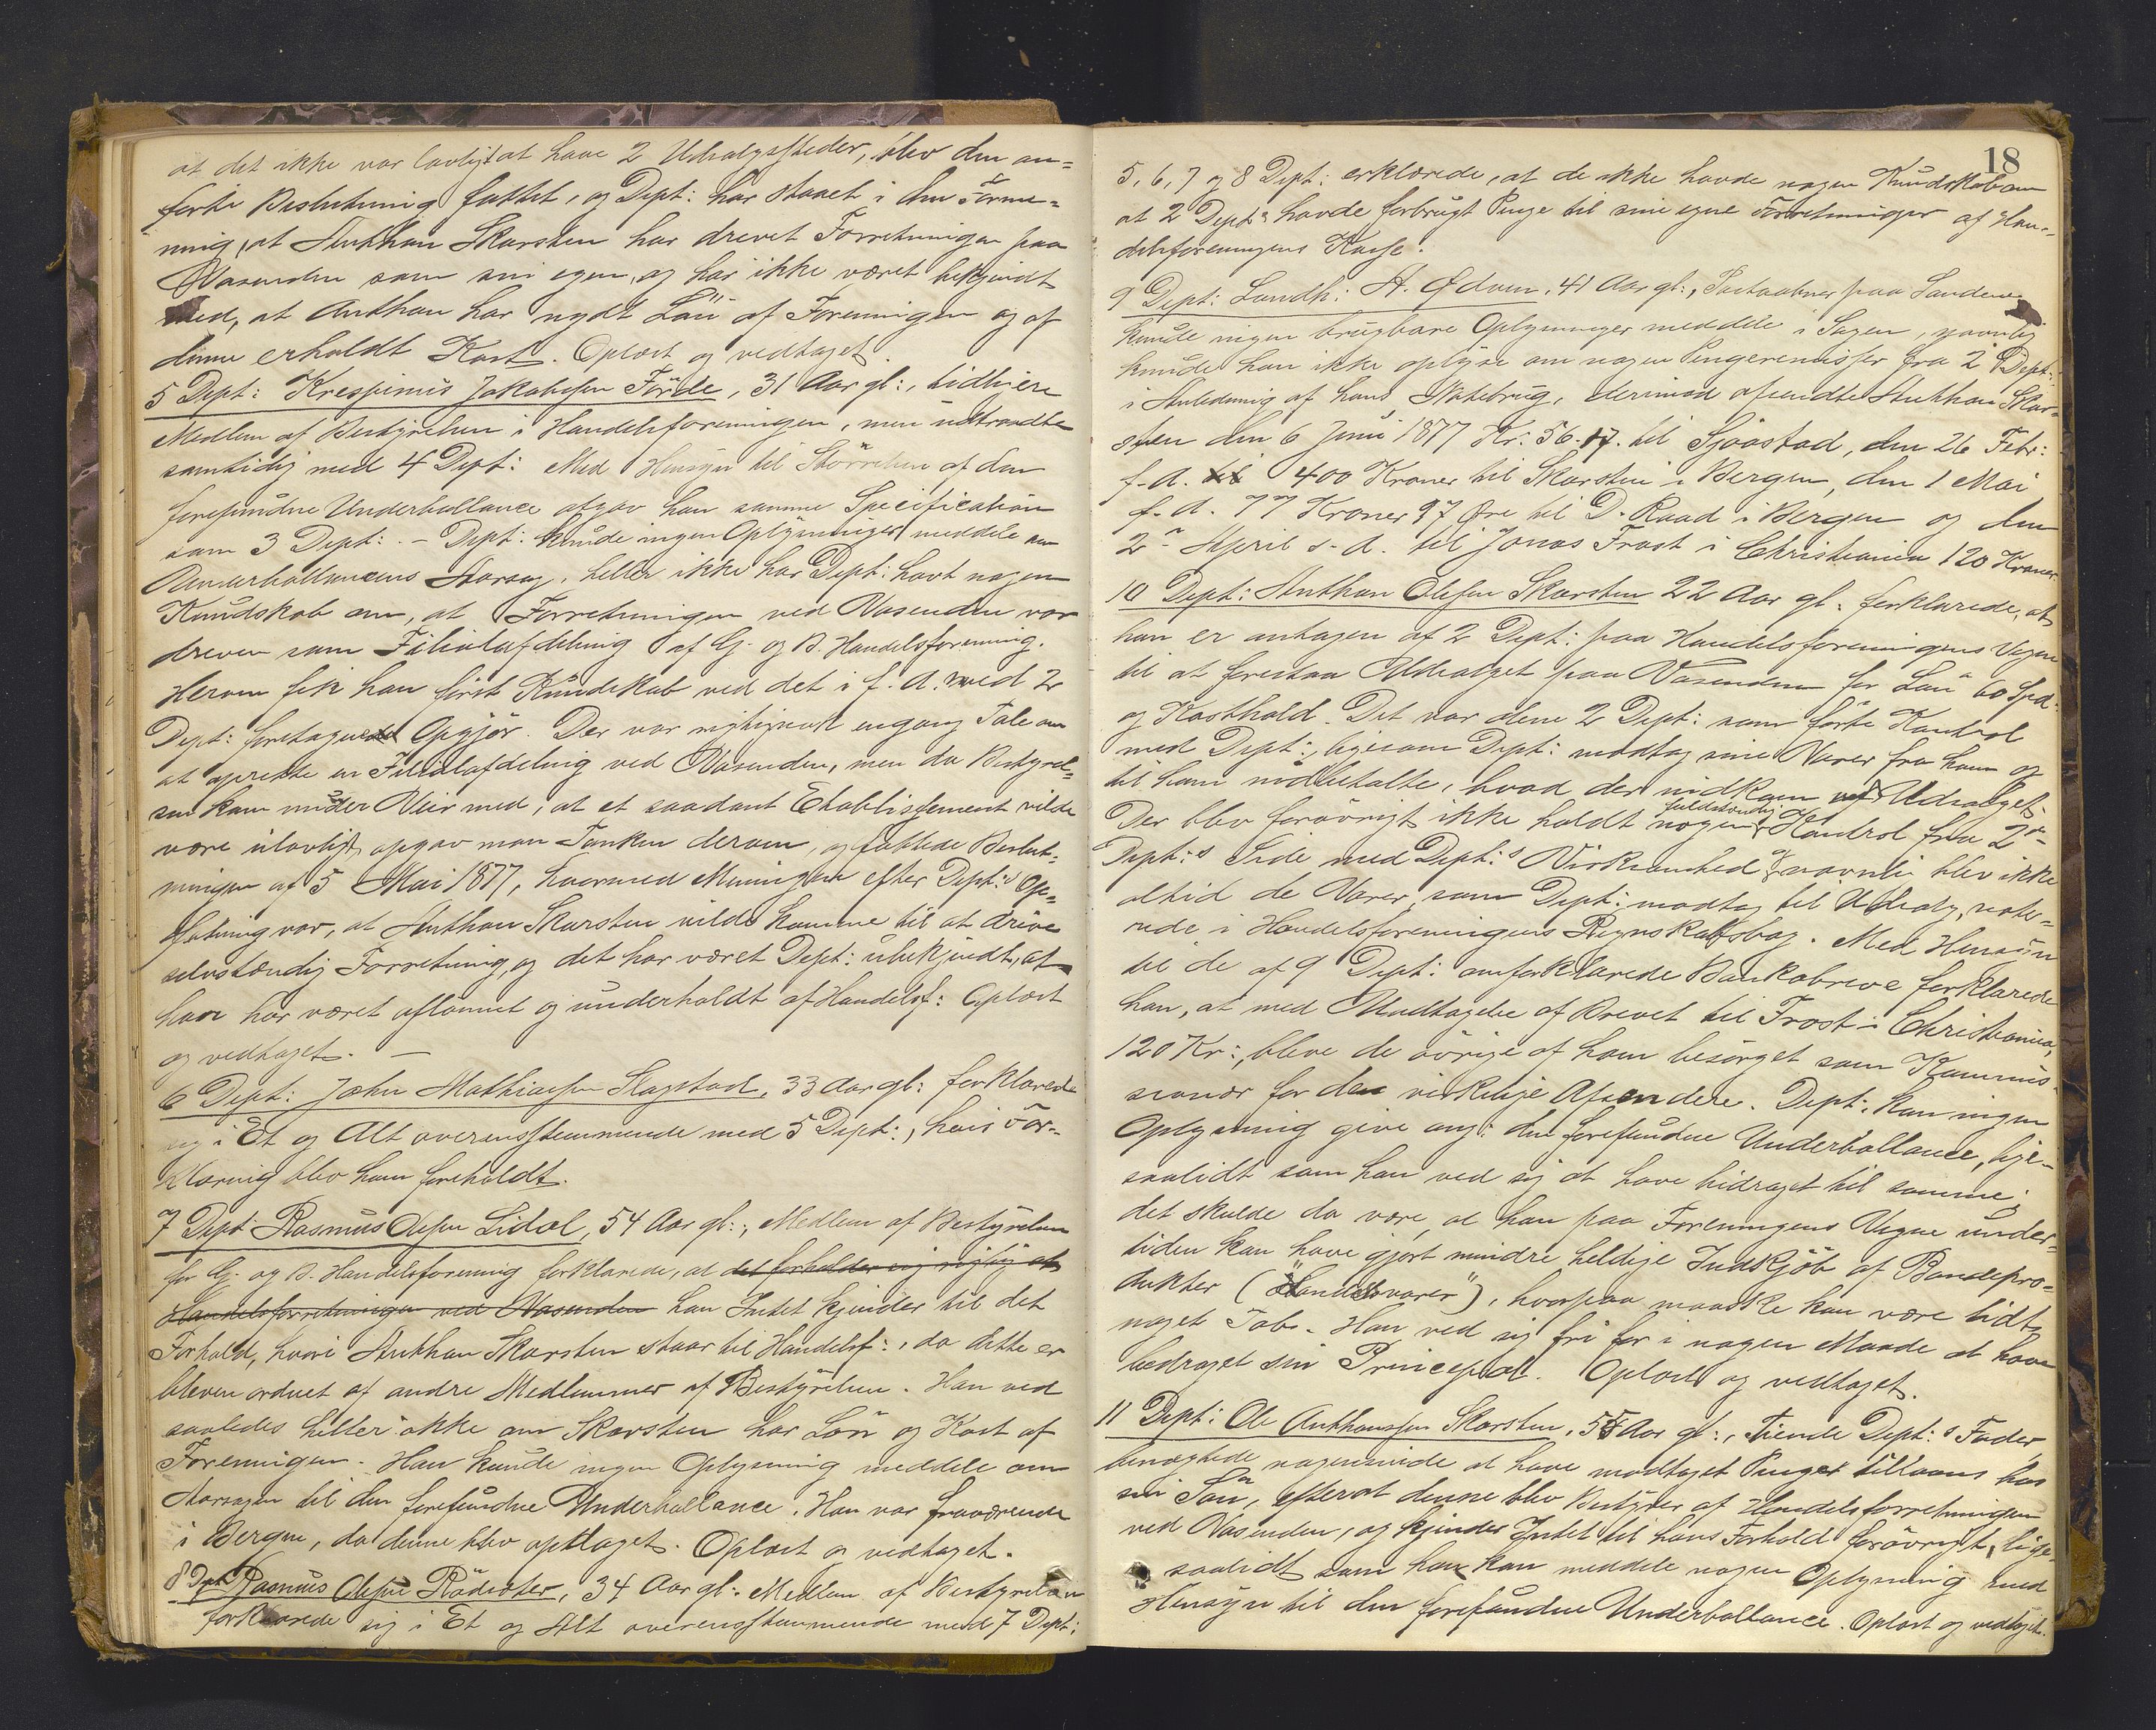 at det ikke var lovligt at have 2 Udsalgssteder, blev den an-
førte Beslutning fattet, og Dept: har staaet i den Forme-
ning, at Anthon Skarsten har drevet Forretningen paa
Vasenden som sin egen, og har ikke været bekjendt
med, at Anthon har nydt Løn af Foreningen og af
denne erholdt Kost. Oplæst og vedtaget.
5 Dept: Krespinus Jakobsen Förde, 31 Aar gl:, tidligere
Medlem af Bestyrelsen i Handelsforeningen, men udtraadte
samtidig med 4 Dept: Med Hensyn til Störrelsen af den
forefundne Underballance afgav han samme Specification
som 3 Dept: . - Dept: kunde ingen Oplysninger meddele om
Underballancens Aarsag, heller ikke har Dept: havt nogen
Kundskab om, at Forretningen ved Vasenden var
dreven som Filialafdeling af G. og B. Handelsforening.
Herom fik han först Kundskab ved det i f. A. med 2
Dept: foretagne Opgjör. Der var rigtignok engang Tale om
at oprette en Filialafdeling ved Vasenden, men da Bestyrel-
sen kom under Veir med, at et saadant Etablissement vilde
være ulovligt, opgav man Tanken derom, og fattede Beslut-
ningen af 5 Mai 1877, hvormed Meningen efter Dept:s Op-
fatning var, at Anthon Skarsten vilde komme til at drive
selvstændig Forretning, og det har været Dept: ubekjendt, at
han har været aflönnet og underholdt af Handelsf: Oplæst
og vedtaget. -
6 Dept: John Mathiassen Slagstad, 33 Aar gl: forklarede
sig i Et og Alt overensstemmende med 5 Dept:, hvis For-
klaring blev ham foreholdt.
7 Dept Rasmus Olsen Lidal, 54 Aar gl:, Medlem af Bestyrelsen
for G. og B. Handelsforening forklarede, at det forholder sig rigtig at
Handelsforretningen ved Vasenden han Intet kjender til det
Forhold, hvori Anthon Skarsten staar til Handelsf:, da dette er
bleven ordnet af andre Medlemmer af Bestyrelsen. Han ved
saaledes heller ikke om Skarsten har Lön og Kost af
Foreningen. Han kunde ingen Oplysning meddele om
Aarsagen til den forefundne Underballance. Han var fraværende
i Bergen, da denne blev optaget. Oplæst og vedtaget.
8 Dept Rasmus Olsen Rödseter, 34 Aar gl: Medlem af Bestyrelsen
forklarede sig i Et og Alt overensstemmende med 7 Dept:
18
5, 6, 7 og 8 Dept: erklærede, at de ikke havde nogen Kundskab om
at 2 Dept: havde forbrugt Penge til sine egne Forretninger af Han-
delsforeningens Kasse.
9 Dept: Landh: A. Ødven, 41 Aar gl:, Postaabner paa Sandene
kunde ingen brugbare Oplysninger meddele i Sagen, navnlig
kunde han ikke oplyse om nogen Pengeremisser fra 2 Dept:
i Anledning af hans Notebrug, derimod afsendte Anthon Skar-
sten den 6 Juni 1877 Kr: 56.17. til Sjöastad, den 26 Febr:
f. A. 400 Kroner til Skarstein i Bergen, den 1 Mai
f. A. 77 Kroner 97 Øre til D. Raad i Bergen og den
2. April s. A. til Jonas Frost i Christiania 120 Kroner
10 Dept: Anthon Olesen Skarsten 22 Aar gl: forklarede, at
han er antagen af 2 Dept: paa Handelsforeningens Vegne
til at forestaa Udsalget paa Vasenden for Lön 60 Spd.
og Kosthold. Det var alene 2 Dept: som förte Kontrol
med Dept:, ligesom Dept: modtog sine Varer fra ham og
til ham indbetalte, hvad der indkom ved Udsalget.
Der blev forövrigt ikke holdt nogen fuldstændig Kontrol fra 2
Dept:s Side med Dept:s Virksomhed og navnlig blev ikke
altid de Varer, som Dept: modtog til Udsalg, note-
rede i Handelsforeningens Regnskabsbog. Med Hensÿn
til de af 9 Dept: omforklarede Bankobreve forklarede
han, at med Undtagelse af Brevet til Frost i Christiania,
120 Kr:, bleve de övrige af ham besörget som Kommis-
sionær for den virkelige Afsendere. Dept: kan ingen
Oplysning give ang: den forefundne Underballance, lige-
saalidt som han ved sig at have bidraget til samme;
det skulde da være, at han paa Foreningens Vegne under-
tiden kan have gjort mindre heldige Indkjöb af Bondepro-
dukter ("Landsvarer"), hvorpaa maaske kan være lidt
noget Tab. Han ved sig fri for i nogen Maade at have
bedraget sin Principal. Oplæst og vedtaget.
11 Dept: Ole Anthonsen Skarsten, 55 Aar gl:, tiende Dept:s Fader,
benægtede nogensinde at have modtaget Penger tillaans hos
sin Sön, efterat denne blev Bestyrer af Handelsforretningen
ved Vasenden, og kjender Intet til hans Forhold forövrigt, lige-
saalidt som han kan meddele nogen Oplysning med
Hensyn til den forefundne Underballance. Oplæst og vedtaget.